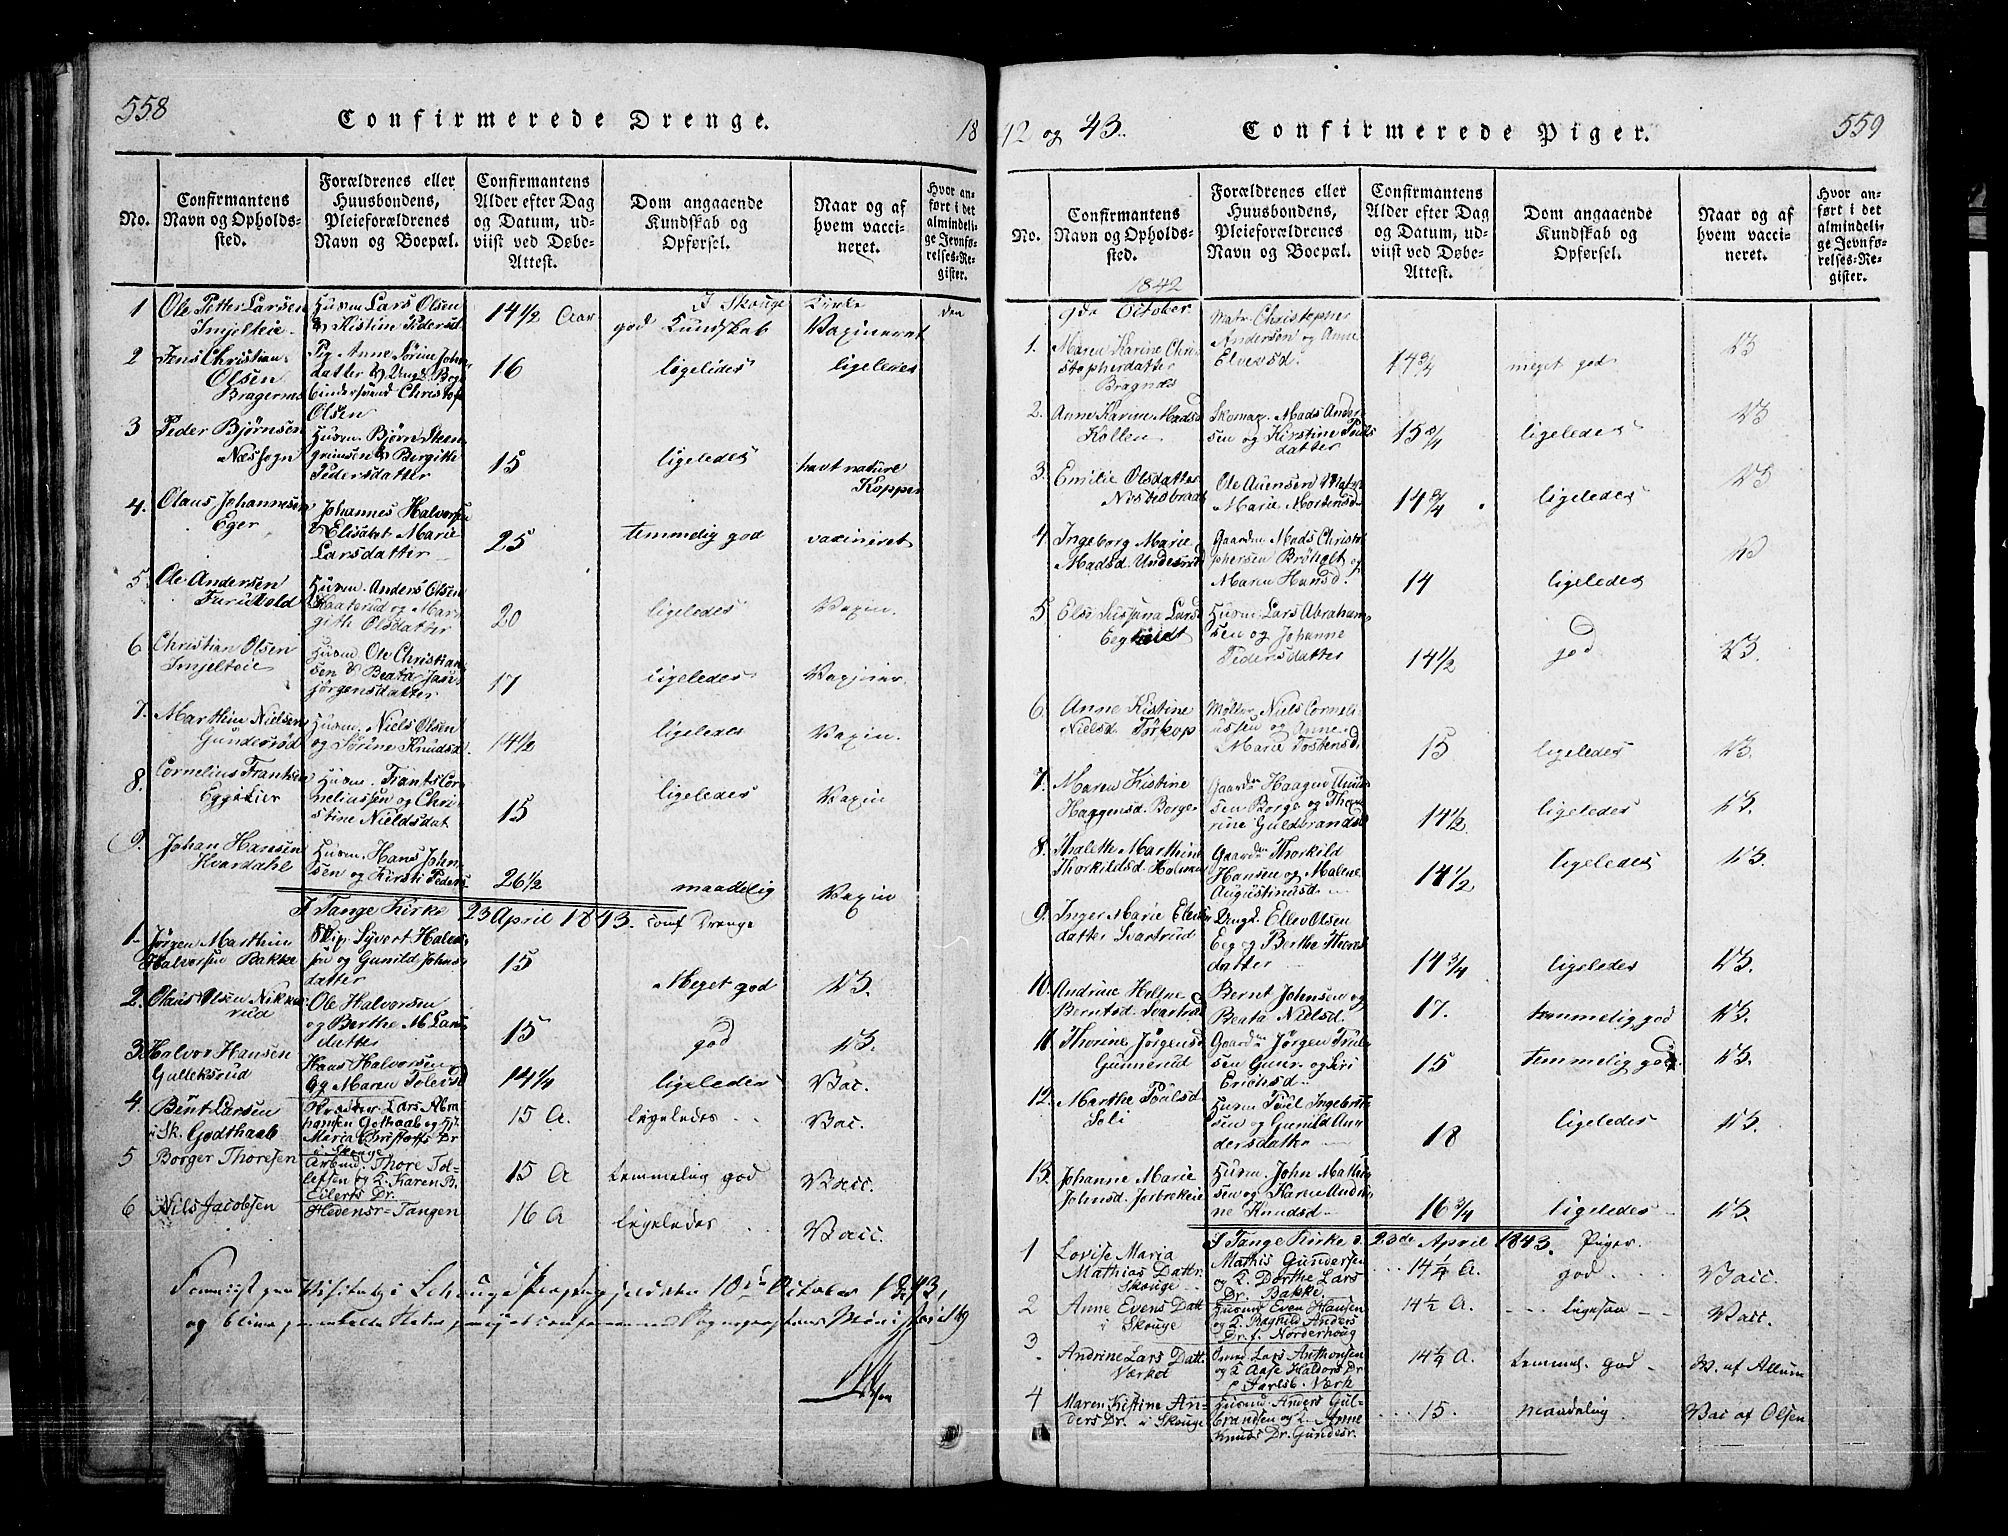 558
Confirmerede Drenge.
18
No.
Confirmantens Navn og Opholds-sted.
Forældrenes eller Huusbondens, Pleieforældrenes Navn og Boepæl.
Confirmantens Alder efter Dag og Datum, ud-viist ved Døbe-Attest.
Dom angaaende Kundskab og Opførsel.
Naar og af hvem vacci-neret.
Hvor an-ført i det almindeli-ge Jevnfø-relses-Re-gister.
I Skouge Kirke den
1
Ole Petter Larsen
Husm. Lars Olsen
14 1/2 Aar
god Kundskab
Vaxineret
& Kistine Pedersd
2
Jens Christian
Pig. Anne Sørine John
datter & Ungd. Bog
16
ligeledes
ligeledes
Olsen
Bragernes
bindersvend Christof
Olsen
3
Peder Bjørnsen
Husm. Bjørn Steen
Næs sogn
grimsen & Bergitte
Pedersdatter
15
ligeledes
havt nature
Kopper
4.
Olaus Johannesen
Eger
Johannes Halvorsen
& Elisabet Marie
Larsdatter
25
temmelig god
vaxineret
5.
Ole Andersen
Husm. Anders Olsen
og Mar
gith Olsdatter
20
ligeledes
Vaxin.
6
Christian Olsen
Husm Ole Christian
sen & Beata
Jørgensdatter
17
ligeledes
Vaxiner.
7.
Marthin Nielsen
Gundesrød
Husm. Niels Olsen
og Sørine Knudsd.
14 1/2
ligeledes
Vaxin.
8.
Cornelius Frantsen
Husm. Frants Cor
neliussen og Chri
stine Nieldsdat
15
ligeledes
Vaxin
9.
Johan Hansen
Hvardahl
Husm. Hans John
sen og Kirsti Peders
26 1/2
maadelig
Vaxin
I Tange Kirke 23 April 1843. conf Drenge
1.
Jørgen Marthin
Halvorsen Bakke
Skip. Syvert Halvor
sen og Gunild Johns
datter
15
Meget god
V3.
2.
Olaus Olsen Nikke
rud
Ole Halvorsen
og Berthe M. Lars
datter
15
god
V3.
3.
Halvor Hansen
Gulleksrud
Hans Halvorsen
Og Maren Tolevsd
14 1/4
ligeledes
Vac.
4.
Bent Larsen
i Sk. Godthaab
Lars Abra
hamsen Gothaab og
Maria Christoffs Dr
i Skouge
15 A.
ligeledes
Vac.
5
Borger Thoresen
Arbmd. Thore Tol-
lefsen og K. Karen B.
Eilerts Dr.
15 A
temmelig god
Vacc.
6
Nils Jacobsen
Hedensr- Tangen
16 A
ligeledes
Vacc.
12 og 43.
Confirmerede Piger.
559
No.
Confirmantens Navn og Opholds-sted.
Forældrenes eller Huusbondens, Pleieforældrenes Navn og Boepæl.
Confirmantens Alder efter Dag og Datum, ud-viist ved Døbe-Attest.
Dom angaaende Kundskab og Opførsel.
Naar og af hvem vacci-neret.
Hvor an-ført i det almindeli-ge Jevnfø-relses-Re-gister.
1842
9de October
1.
Maren Karine Chri
stopherdatter
Bragnæs
Matr. Christopher
Anderson og Anne
Elversd.
14 3/4
meget god
V3
2.
Anne Karine Madsd
Kollen
Skomag. Mads Ander
sen og Kirstine Pouls
datter
15 3/4
ligeledes
V3
3.
Emilie Olsdatter
Ole Auensen
Marie Mortensd.
14 3/4
ligeledes
V3
4.
Ingeborg Marie
Madsd. Undesrud
Gaardm Mads Christo
phersen Brøholt og
Maren Hansd.
14
ligeledes
V3
5
Else Lars
Husm. Lars Abraham
sen og Johanne
Pedersdatter
14 1/2
god
V3.
6.
Anne Kistine
Nielsd. Tørkop
Møller Niels Corneli
ussen og Anne
Marie Tostensd
15
ligeledes
V3.
7.
Maren Kistine
Haggensd. Borge
Gaardm Haagen Amun
sen Borge og Thor
rine Guldbrandsd
14 1/2
ligeledes
V3.
8.
Malette Marthine
Thorkildsd. Holmen
Gaardm Thorkild
Hansen og Malene
Augustinusd.
14 1/2
ligeledes
V3.
9.
Inger Marie Elevs
datter Svartrud
Ungd. Ellev Olsen
Eeg og Berthe Thores
datter
14 3/4
ligeledes
V3.
10.
Andrine Helene
Berntsd. Svartrud
Bernt Johnsen og
Beata Nielsd.
17.
temmelig god
V3.
11.
Thorine Jørgensd
Gunnerud
Gaardm Jørgen Trul
sen Gunr. og Siri
Erichsd.
15
temmelig god
V3.
12.
Marthe Poulsd
Soli
Husm Poul Ingebrit
sen og Gunild An
dersdatter
18
ligeledes
V3.
13.
Johanne Marie
Johnsd. Jorbrekeie
Husm. John Mathi
sen og Karen Andri
ne Knudsd
16 3/4
ligeledes
V3.
I Tange Kirke d. 23de April 1843. Piger.
1
Lovise Maria
Mathias Dattr.
Skouge
Mathis Gundersen
og K. Dorthe Lars
Dr. Bakke.
14 1/4 A.
god
Vacc.
2
Anne Evens Datt
i Skouge
Husmd Even Hansen
og K. Ragnild Anders
Dr. f. Norderhoug
14 1/2 A.
ligesaa
Vacc.
3.
Andrine Lars Datt.
Værket
Lars Anthonsen
og K. Aase Haldors Dr
p Jarlsb. Værk
14 1/4 A.
temmel. god
V. af Allum
4
Maren Kistine An-
ders Dr. i Skouge
Husmd Anders Gul-
brandsen og K. Anne
Knuds Dr. Gundesr.
15.
Maadelig
Vac af Olsen